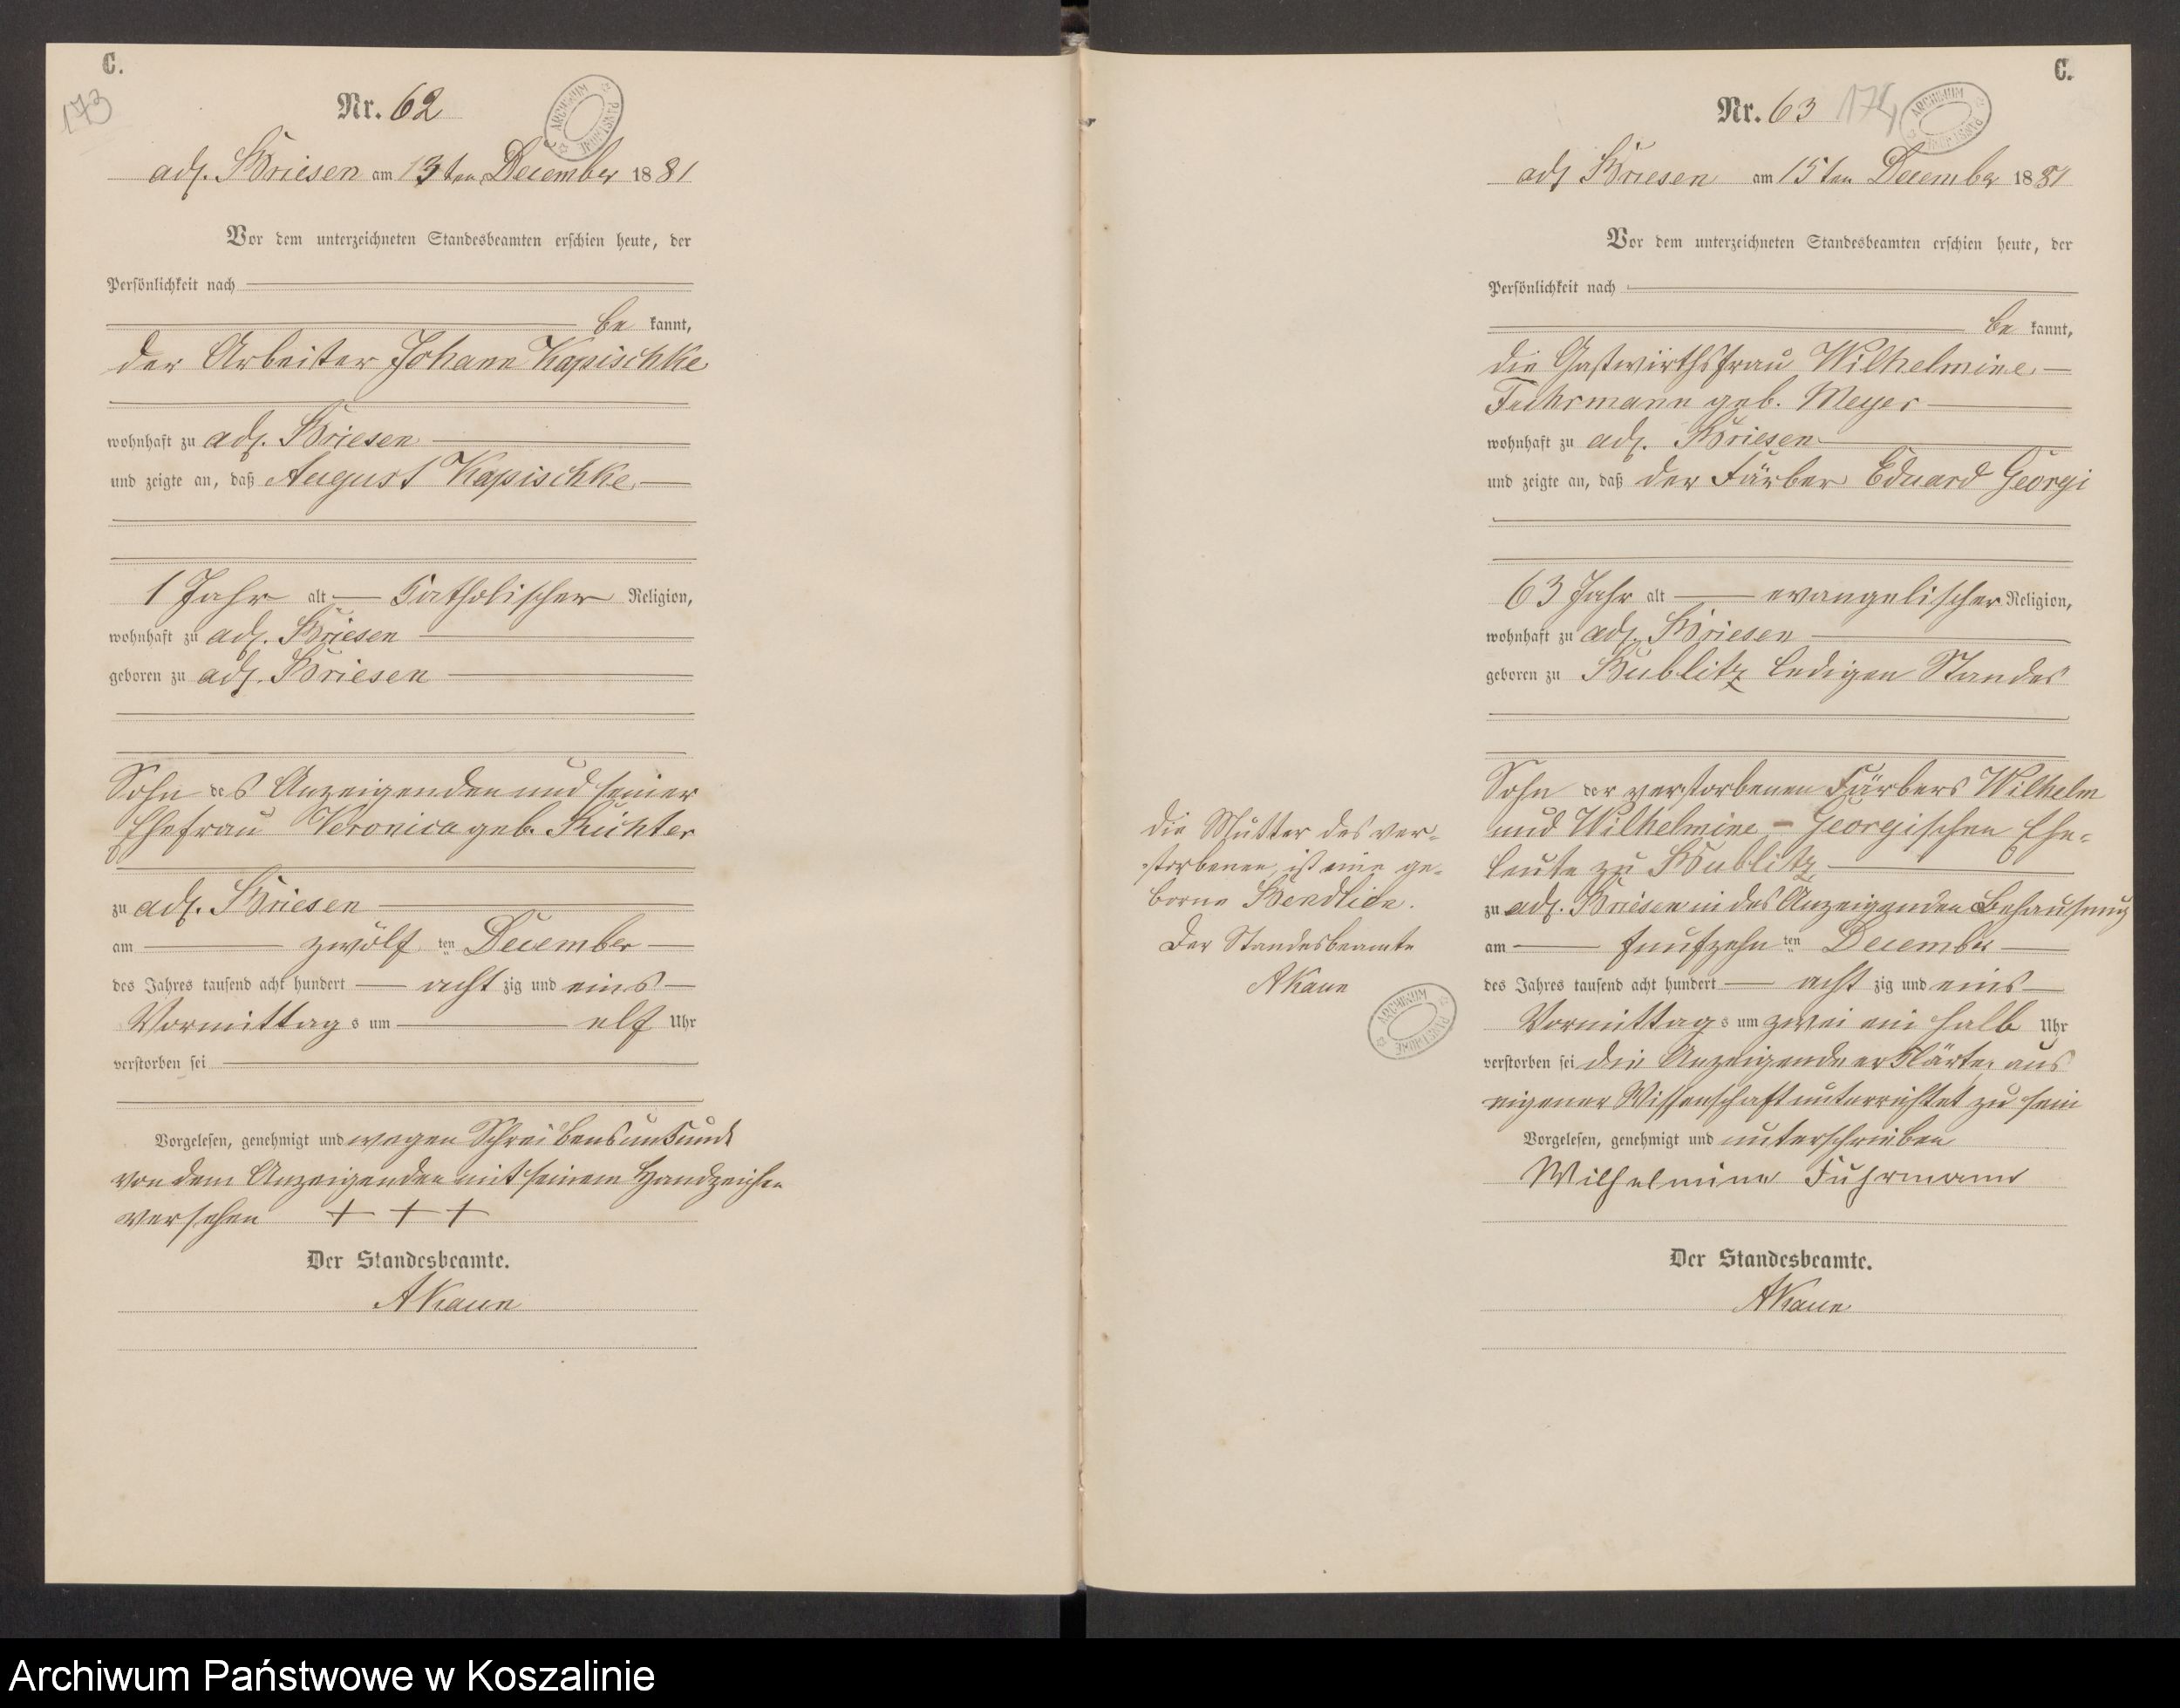 C.
173
Nr. 62
ARCHIWUM PAŃSTWOWE
adl. Briesen am 13ten December 1881
Vor dem unterzeichneten Standesbeamten erschien heute, der
Persönlichkeit nach
be kannt,
der Arbeiter Johann Kapischke
wohnhaft zu adl. Briesen
und zeigte an, daß August Kapischke
1 Jahr alt katholischer Religion,
wohnhaft zu adl. Briesen
geboren zu adl. Briesen
Sohn des Anzeigenden und seiner
Ehefrau Veronica geb. Richter
zu adl. Briesen
am zwölf ten December
des Jahres tausend acht hundert acht zig und eins
Vormittag s um elf Uhr
verstorben sei
Vorgelesen, genehmigt und wegen Schreibensunkunde
von dem Anzeigenden mit seinem Handzeichen
versehen + + +
Der Standesbeamte.
AKaun
C.
Nr. 63 174
adl. Briesen am 15ten December 1881
Vor dem unterzeichneten Standesbeamten erschien heute, der
Persönlichkeit nach
be kannt,
die Gastwirthsfrau Wilhelmine
Fuhrmann geb. Meyer
wohnhaft zu adl. Briesen
und zeigte an, daß der Färber Eduard Georgi
63 Jahr alt evangelischer Religion,
wohnhaft zu adl. Briesen
geboren zu Bublitz ledigen Standes
Sohn der verstorbenen Färbers Wilhelm
und Wilhelmine - Georgischen Ehe-
leute zu Bublitz
zu adl. Briesen in des Anzeigenden Behausung
am funfzehn ten December
des Jahres tausend acht hundert acht zig und eins
Vormittag s um zwei ein halb Uhr
verstorben sei die Anzeigende erklärte, aus
eigener Wissenschaft unterrichtet zu sein
Vorgelesen, genehmigt und unterschrieben
Wilhelmine Fuhrmann
Der Standesbeamte.
AKaun
Die Mutter des ver-
storbenen, ist eine ge-
borne
Der Standesbeamte
AKaun
ARCHIWUM PAŃSTWOWE
Archiwum Państwowe w Koszalinie